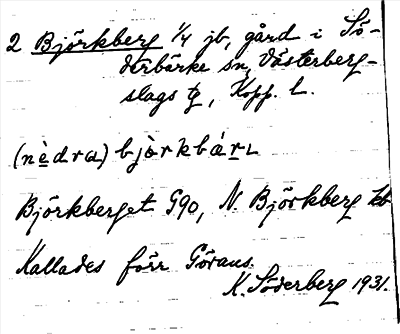 2 Björkberg 1/4 jb, gård i Sö-
derbärke sn, Västerberg-
slags tg, Kopp. l.
(nè̱dra) bjò̱rkbá̱rı
Björkberget G90, N. Björkberg kb
Kallades förr Görans.
K. Söderberg 1931.